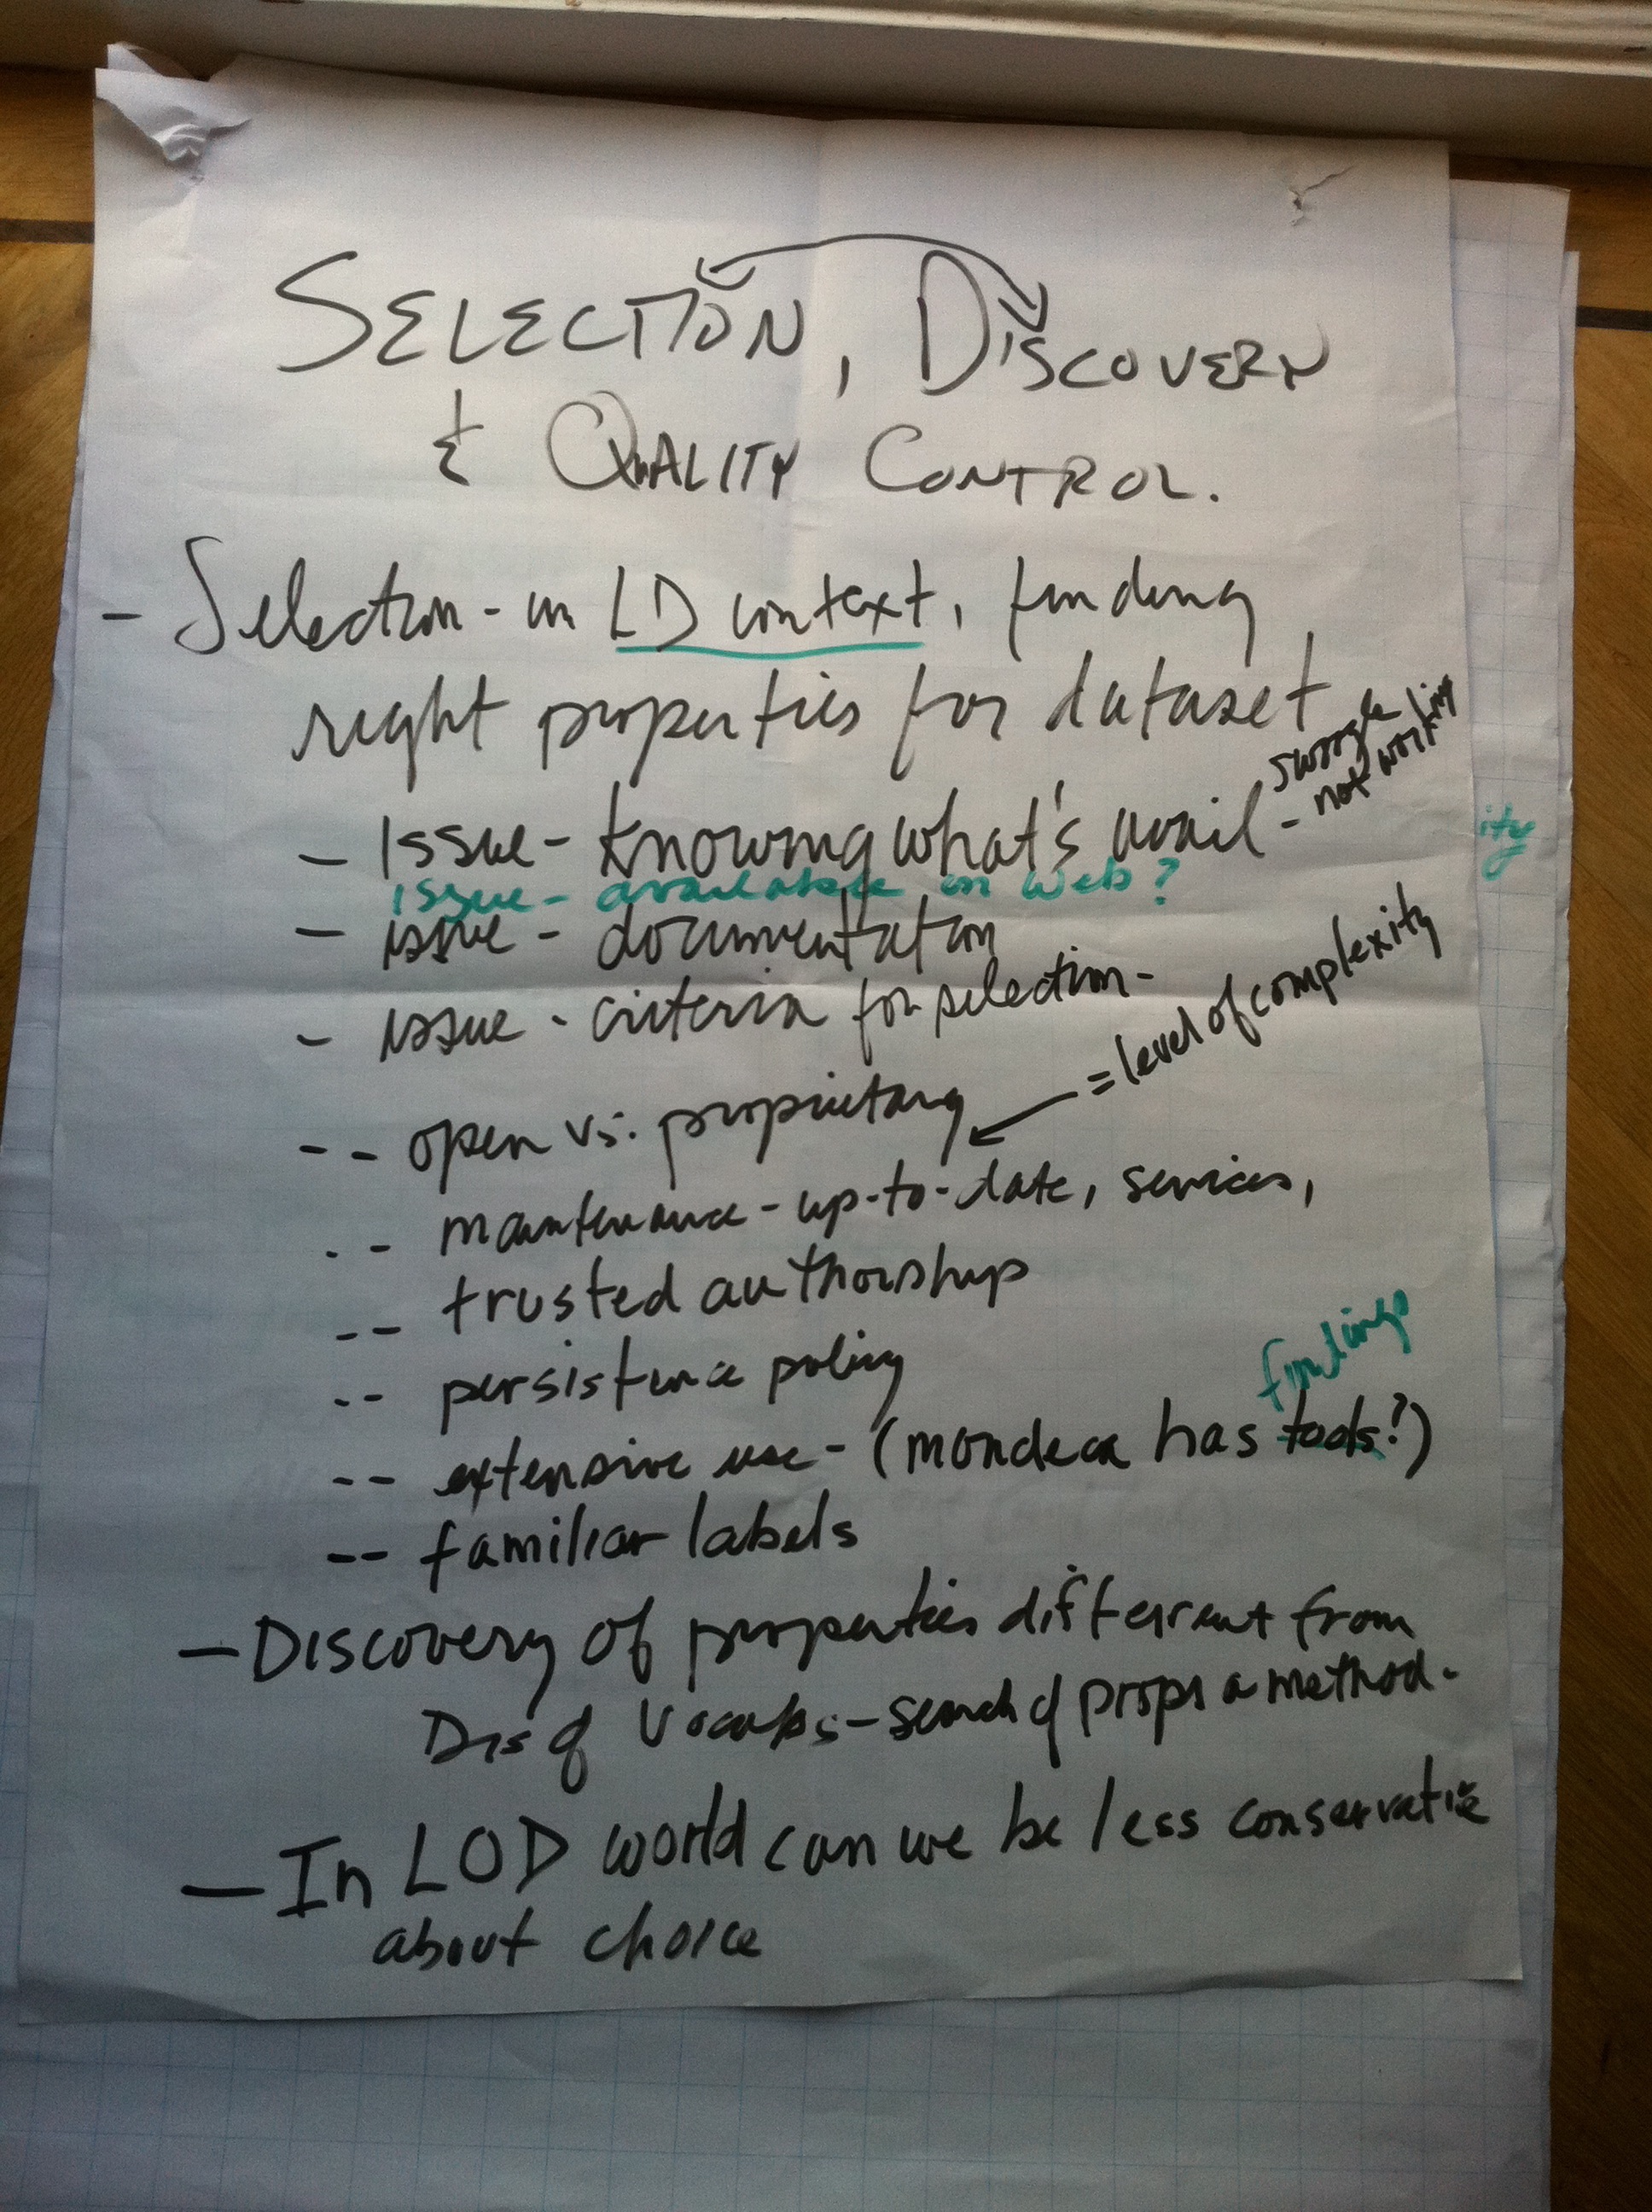 SELECTION, DISCOVERY
& QUALITY CONTROL.
- Selection - in LD context, finding
right properties for dataset
- Issue - knowing what's avail - swoogle
not working
issue - available on web?
ity
- issue - documentation
- issue - criteria for selection -
= level of complexity
-- open vs. proprietary
-- maintenance - up-to-date, services,
-- trusted authorship
-- persistence policy
findings
-- extensive use - (mondeca has tools?)
-- familiar labels
- Discovery of properties different from
Dis of Vocabs - search of props a method.
- In LOD world can we be less conservative
about choice